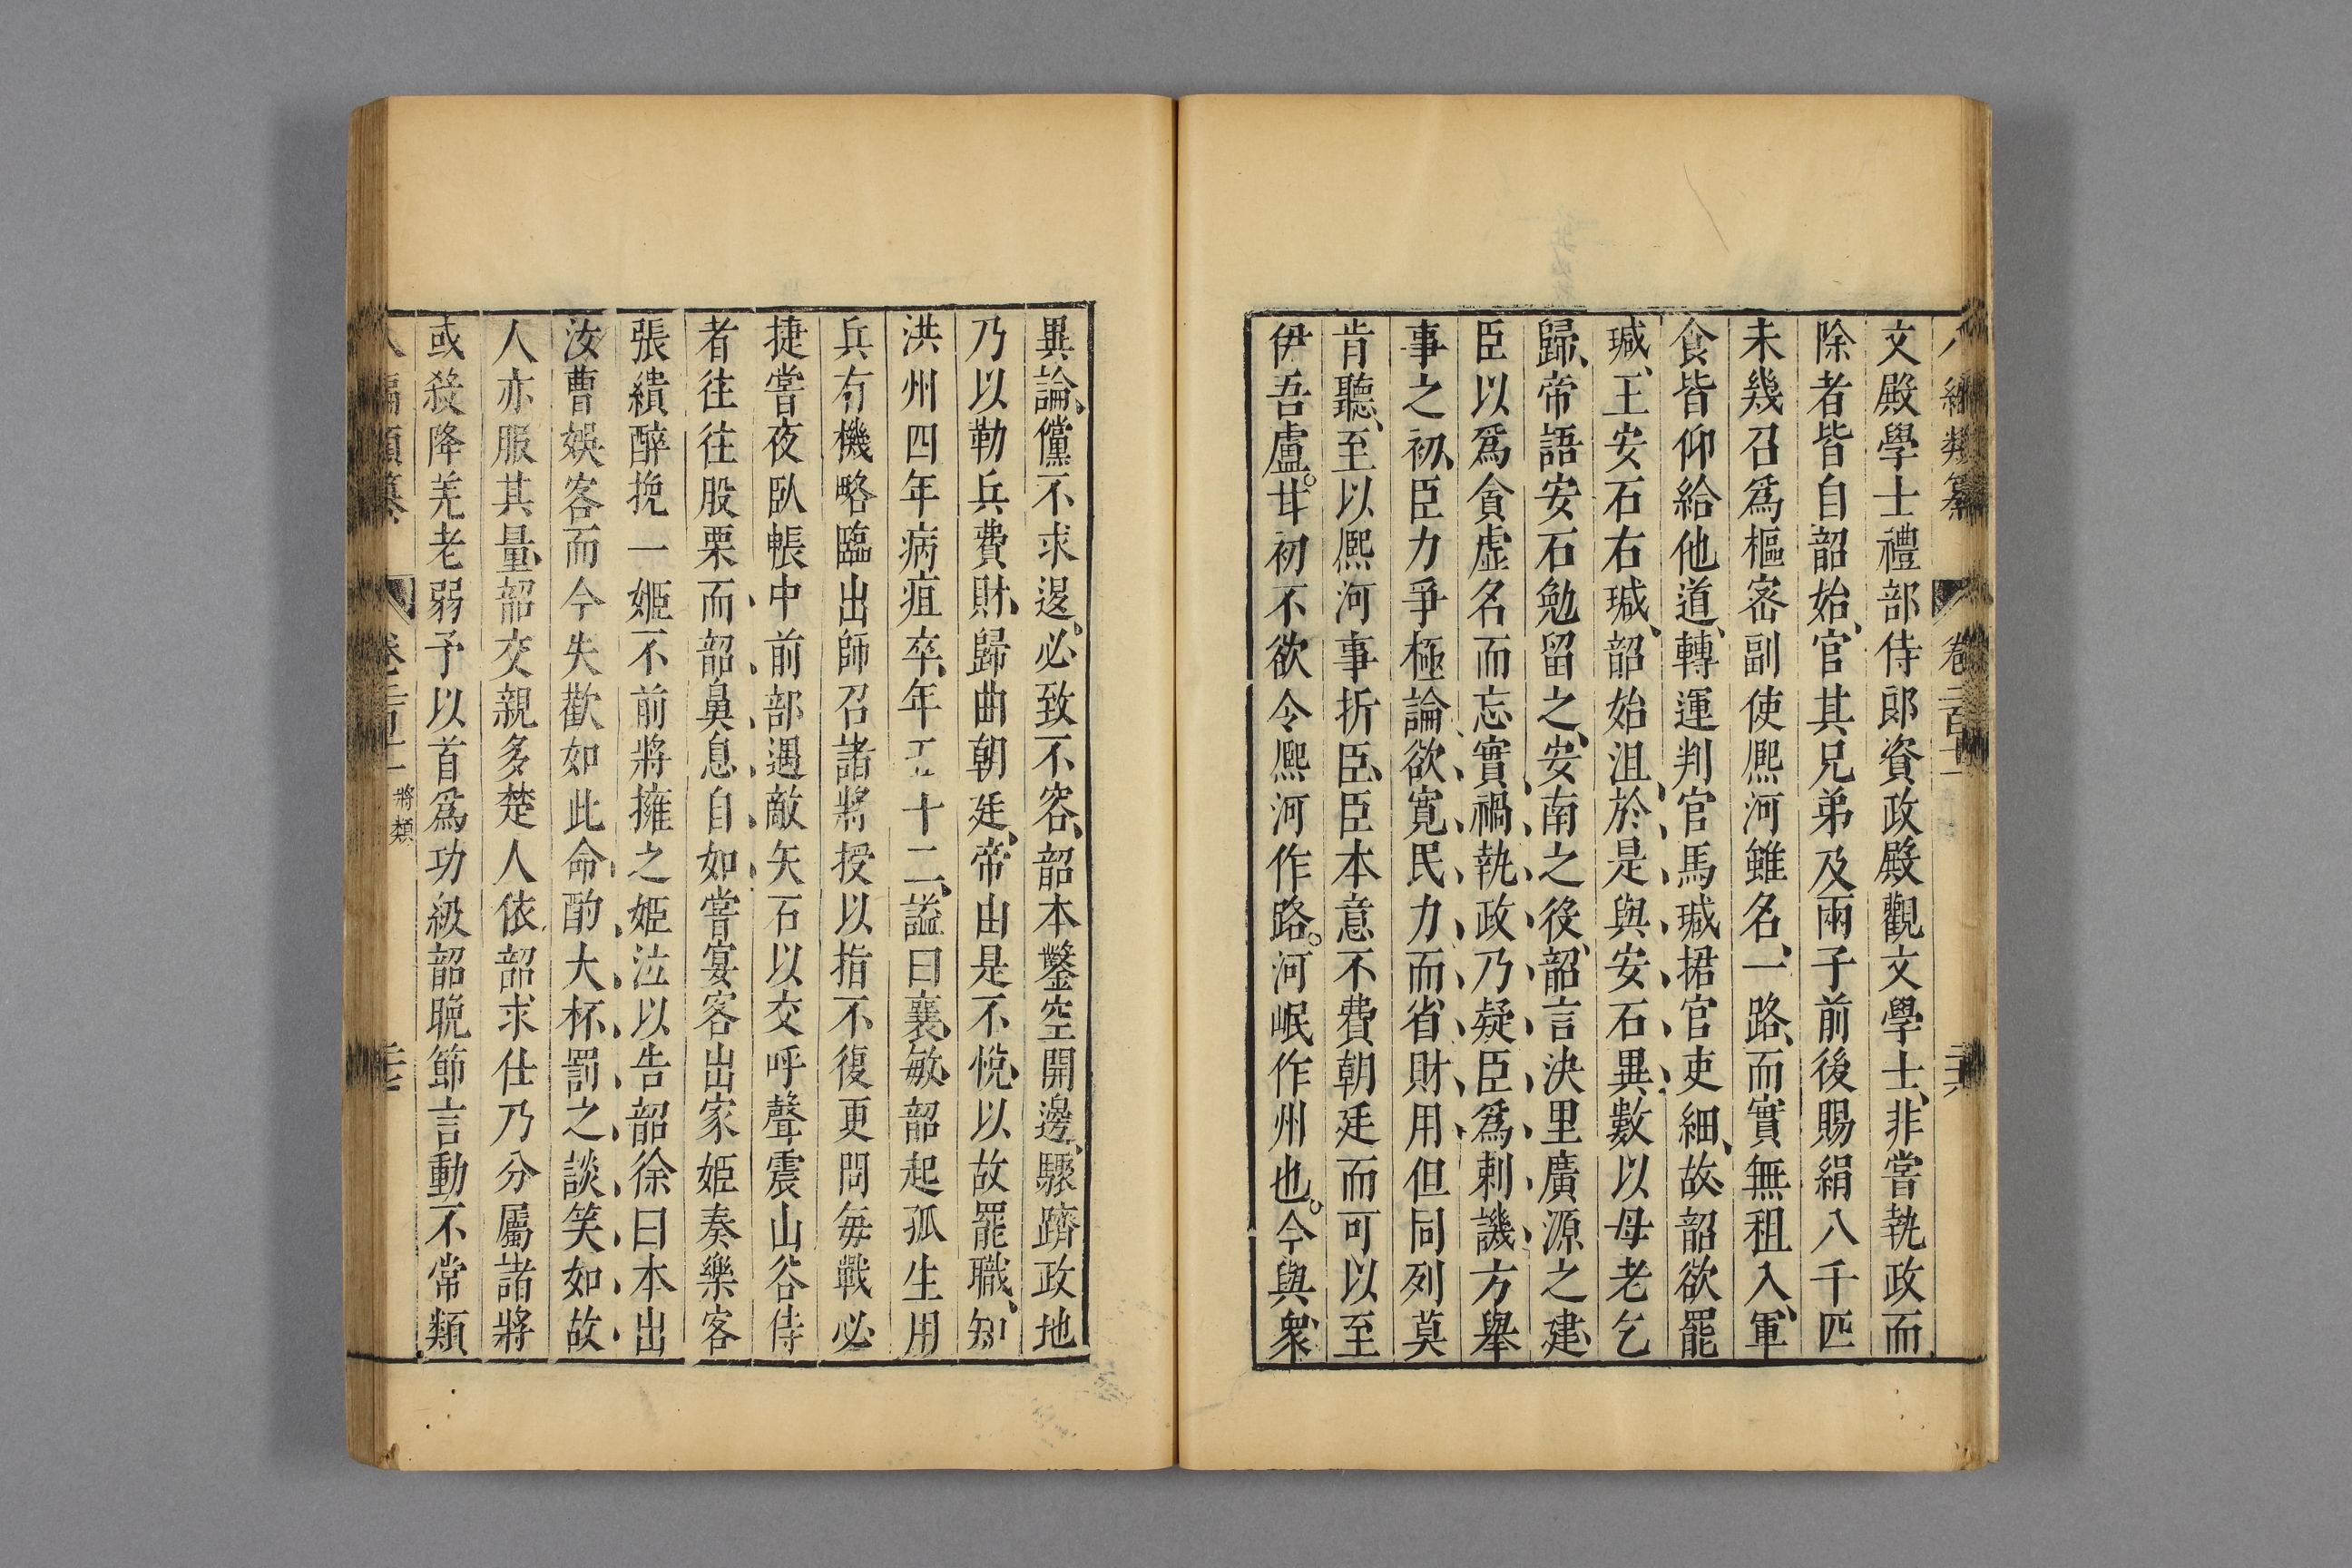 八編類纂 卷二百十一 二十六
文殿學士禮部侍郞資政殿觀文學士、非嘗執政而
除者皆自韶始、官其兄弟及兩子前後賜絹八千匹
未幾召爲樞密副使熈河雖名、一路、而實無租入、軍
食皆仰給他道、轉運判官馬瑊捃官吏細、故、韶欲罷
瑊、王安石右瑊、韶始沮於是與安石異、數以母老乞
歸、帝語安石勉留之、安南之役、韶言決里廣源之建、
臣以爲貪虛名而忘實禍、執政乃疑臣爲刺譏方舉
事之初、臣力爭極論、欲寛民力而省財用但同列莫
肯聽、至以熈河事折臣、臣本意不費朝廷而可以至
伊吾盧。甘初不欲令熈河作路。河岷作州也。今與衆、
異論、儻不求退。必致不容、韶本鑿空開邊、驟躋政地
乃以勒兵費財、歸曲朝廷、帝由是不悅、以故罷職、知
洪州四年病疽卒、年五十二、諡曰襄、敏、韶起孤生用
兵有機略臨出師召諸將授以指不復更問毎戰必
捷嘗夜臥帳中前部遇敵矢石以交呼聲震山谷侍
者往往股栗而韶鼻息自如嘗宴客出家姬奏樂客
張繢醉挽一姬不前將擁之姬泣以告韶徐曰本出
汝曹娛客而今失歡如此命酌大杯罰之談笑如故
人亦服其量、韶交親多楚人依韶求仕乃分屬諸將
或殺降羌老弱予以首爲功級韶晩節言動不常類
類纂 將類